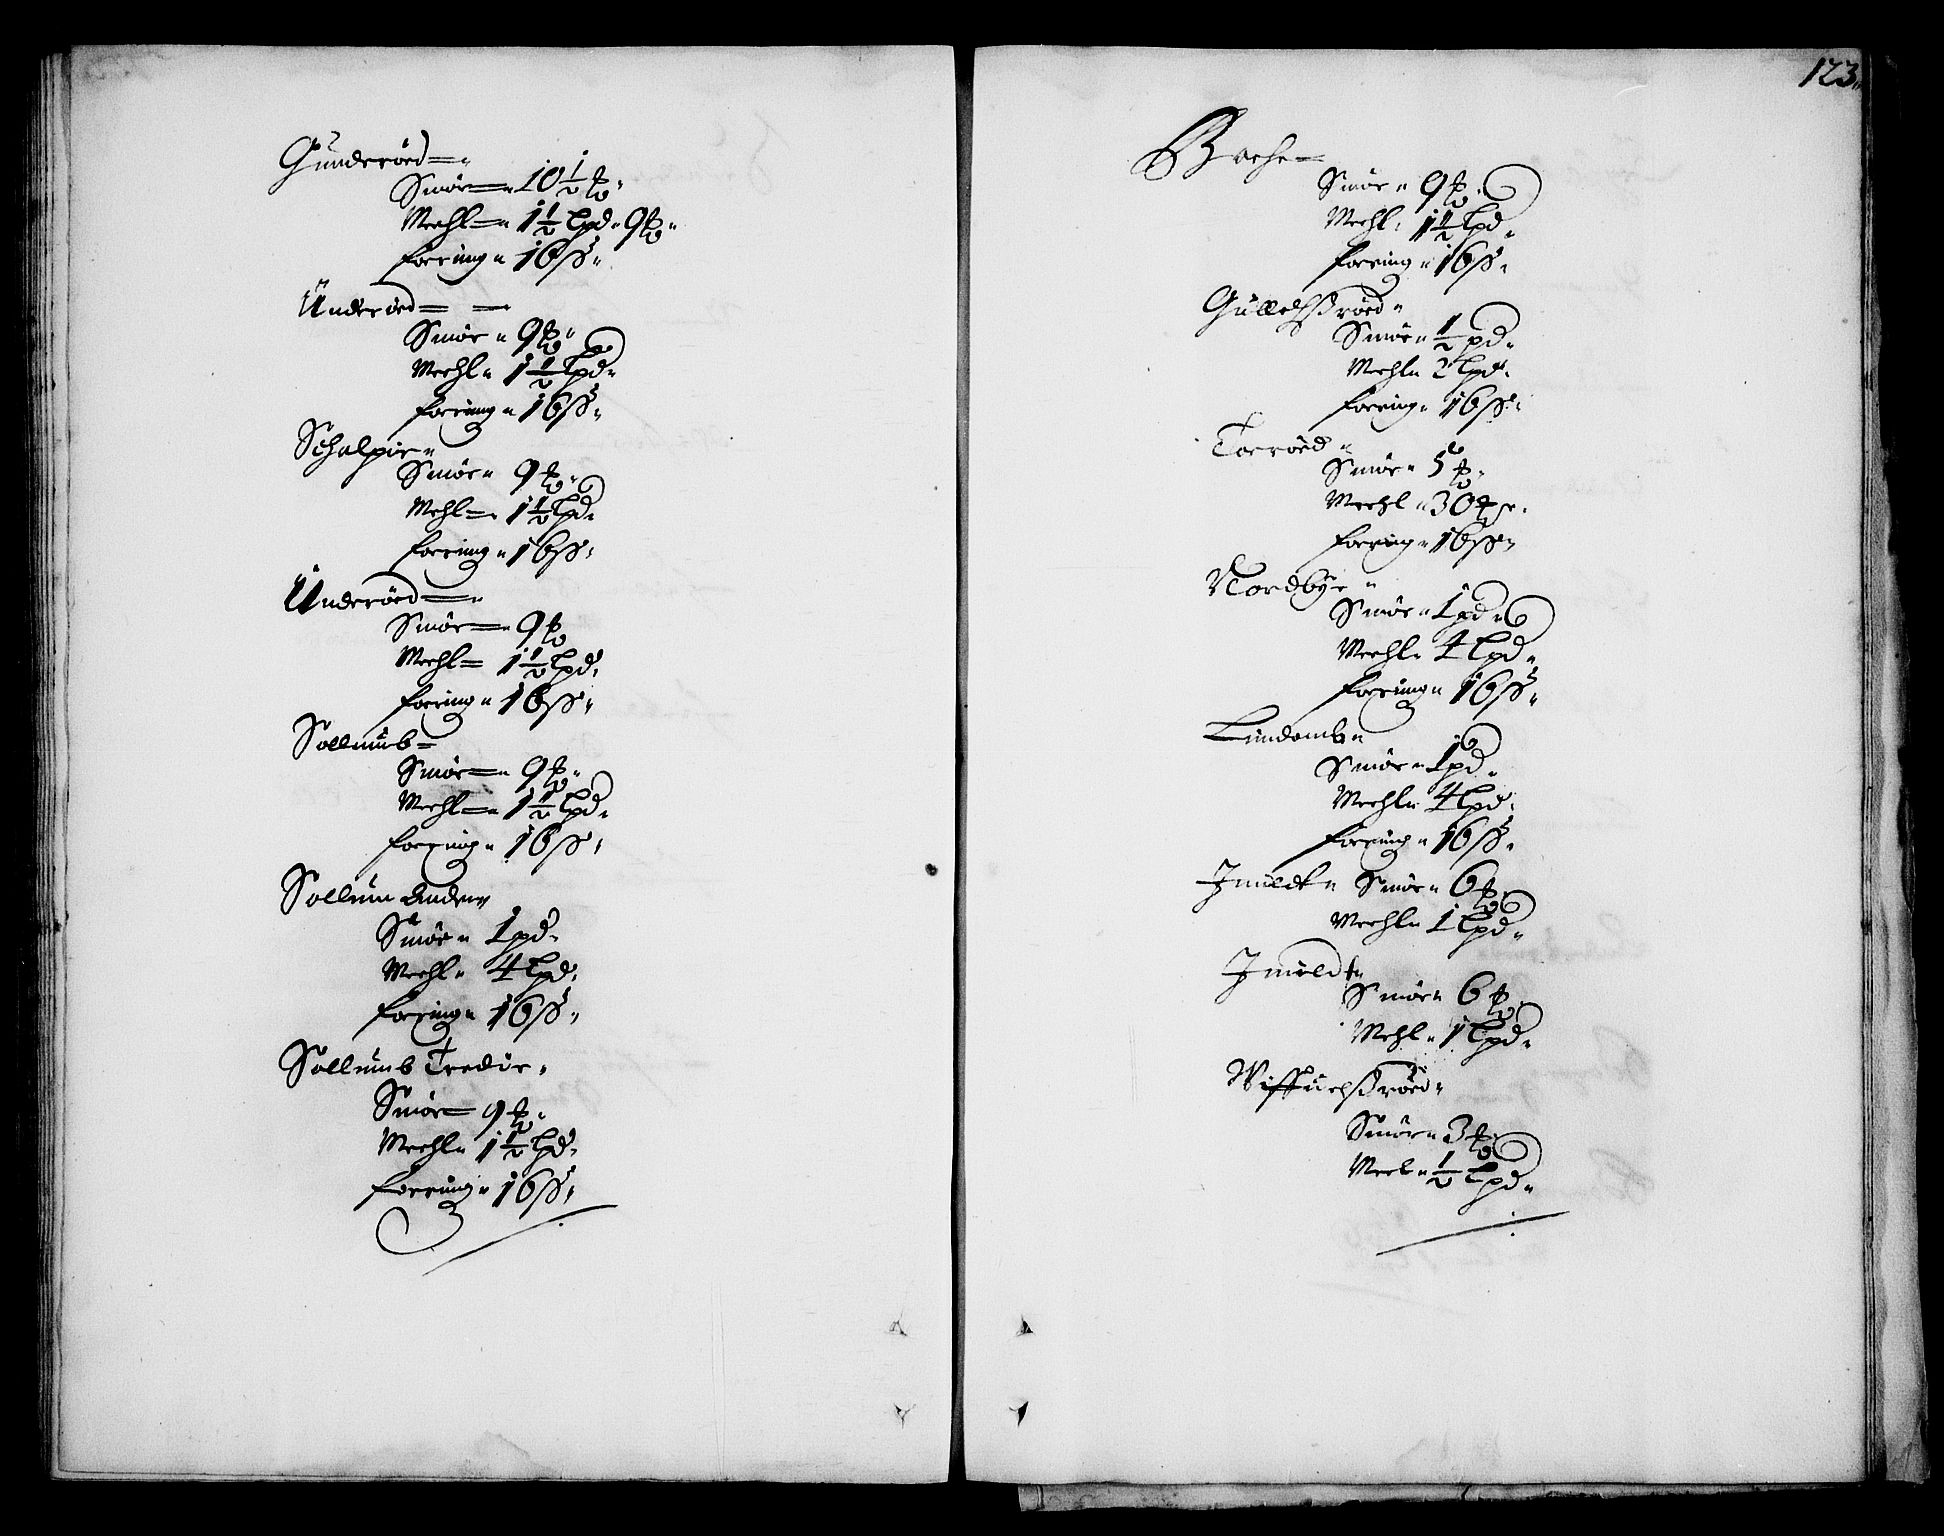 Gunderöed
Smör 10 1/2 ℔
Meehl 1 1/2 Lpd 9 ℔
foering 16 ß
Underöed
Smör 9 ℔
Meehl 1 1/2 Lpd
foering 16 ß
Schalpir
Smör 9 ℔
Mehl 1 1/2 Lpd
foering 16 ß
Underöed
Smör 9 ℔
Meehl 1 1/2 Lpd
foering 16 ß
Sollumb
Smör 9 ℔
Meehl 1 1/2 Lpd
foering 16 ß
Sollum Anden
Smör 1 pd
Meehl 4 Lpd
foering 16 ß
Sollumb Tredie
Smör 9 ℔
Meehl 1 1/2 Lpd
foering 16 ß
123
Bache
Smör 9 ℔
Meehl 1 1/2 Lpd
foering 16 ß
Gullechßröed
Smör 1/2 pd
Mehl 2 Lpd
foering 16 ß
Torröed
Smör 5 ℔
Meehl 30
foering 16 ß
Nordbye
Smör 1 pd
Meehl 4 Lpd
foering 16 ß
Lundomb
Smör 1 pd
Meehl 4 Lpd
foering 16 ß
Jmüldt Smör 6 ℔
Meehl 1 Lpd
Jmüldt
Smör 6 ℔
Mehl 1 Lpd
Wiffuelßröed
Smör 3 ℔
Meel 1/2 Lpd